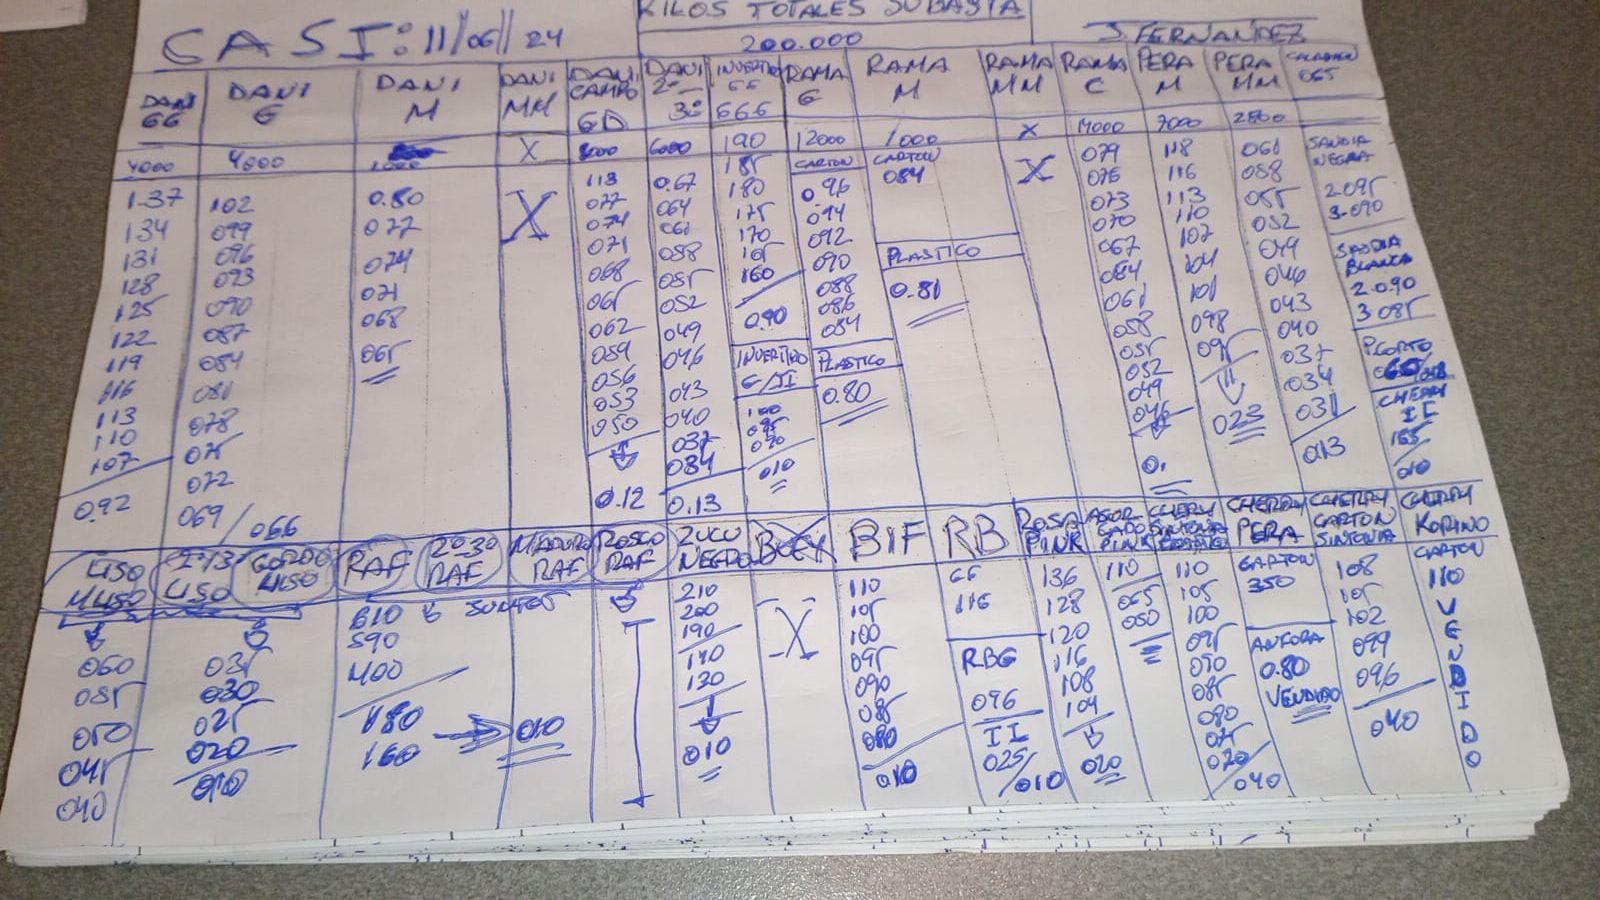 KILOS TOTALES SUBASTA
CASI: 11/06/24
200.000
J. FERNANDEZ
DANI GG
DANI G
DANI M
DANI MM
DANI CAMPO GD
DANI 2ª-3ª
INVERTIDO GG GGG
RAMA G
RAMA M
RAMA MM
RAMA C
PERA M
PERA MM
CALABACIN 065
4000
4000
X
8000
6000
190
12000
1000
X
14000
7000
2800
1.37
134
131
128
125
122
119
116
113
110
107
0.92
102
099
096
093
090
087
084
081
078
075
072
069/066
0.80
077
074
071
068
065
X
113
077
074
071
068
065
062
059
056
053
050
0.12
0.67
064
061
058
055
052
049
046
043
040
037
034
0.13
185
180
175
170
165
160
0.90
INVERTIDO G/II
100
095
090
010
CARTON
0.96
094
092
090
088
086
084
PLASTICO
0.80
CARTON
084
PLASTICO
0.81
X
079
076
073
070
067
064
061
058
055
052
049
046
0.
118
116
113
110
107
104
101
098
095
II
023
061
058
055
052
049
046
043
040
037
034
031
013
SANDIA NEGRA
2-095
3-090
SANDIA BLANCA
2-0.90
3-085
P.CORTO
CHERRY II
165
010
LISO M LISO
2ª/3ª LISO
GORDO LISO
RAF
2ª-3ª RAF
MADURO RAF
ROSCO RAF
ZUCU NEGRO
BUEY
BIF
RB
ROSA PINK
ASURCADO PINK
CHERRY SINTONIA
CHERRY PERA
CHERRY CARTON SINTONIA
CHERRY KORINO
060
055
050
045
040
035
030
025
020
010
610
590
400
180
160
JUNTOS
010
210
200
190
140
130
010
X
110
105
100
095
090
085
080
010
GG
116
RBG
096
II
025
/010
136
128
120
116
108
104
020
110
065
050
110
105
100
095
090
085
080
075
070
/040
CARTON
350
ANGORA
0.80
VENDIDO
108
105
102
099
096
040
CARTON
110
VENDIDO